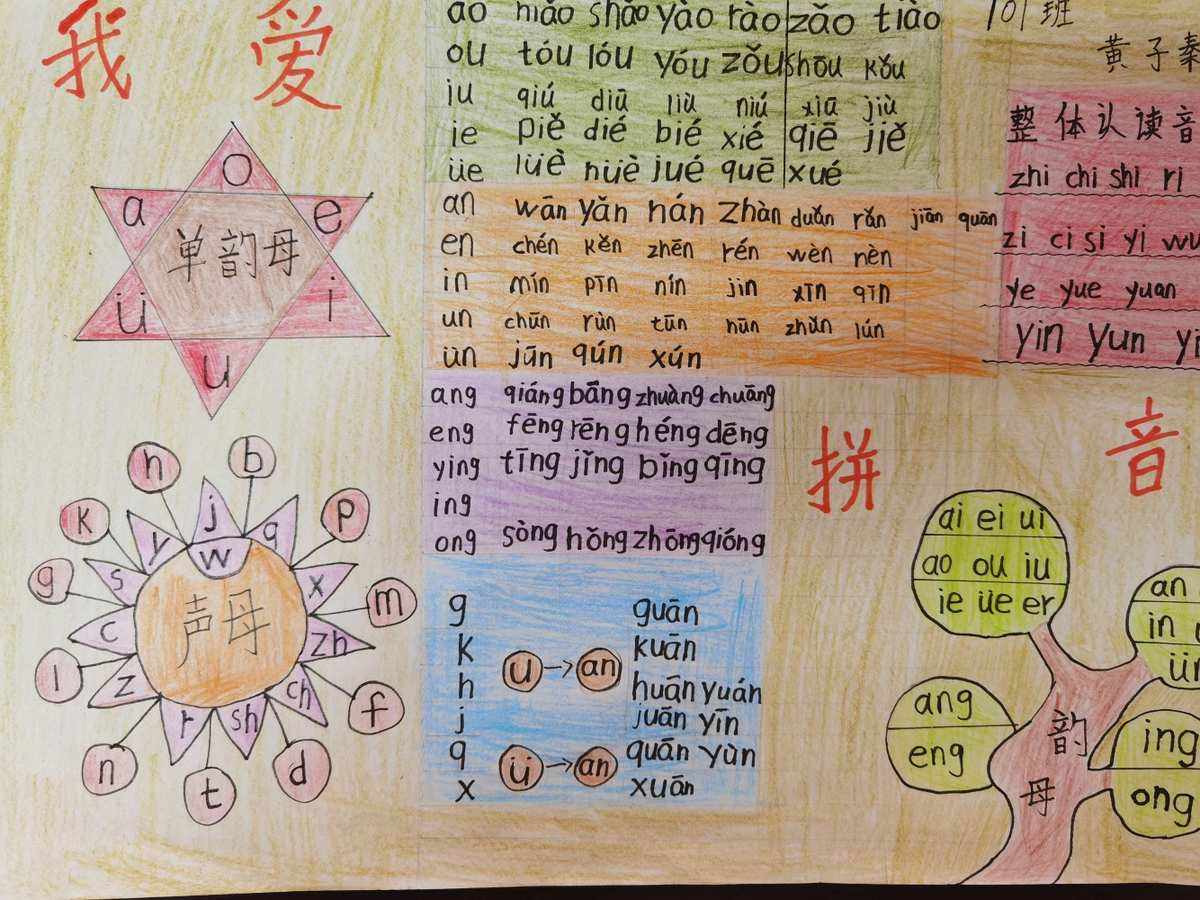 我 爱
拼 音
101班
黄子秦
o
a e
单韵母
ü i
u
h b
k p
g m
l f
n t d
j q x zh ch sh r z c s y w
声母
ao hǎo shǎo yào rào zǎo tiào
ou tóu lóu yóu zǒu shōu kǒu
iu qiú diū liù niú xiā jiù
ie piě dié bié xié qiē jiě
üe lüè nüè jué quē xué
an wān yǎn nán zhàn duǎn rǎn jiān quān
en chén kěn zhēn rén wèn nèn
in mín pīn nín jìn xīn qīn
un chūn rùn tūn hūn zhǔn lún
ün jūn qún xún
ang qiáng bǎng zhuàng chuāng
eng fēng rēng héng dēng
ying tīng jǐng bǐng qīng
ing
ong sòng hǒng zhōng qióng
g guān
k u→an kuān
h huān yuán
j juān yīn
q ü→an quān yùn
x xuān
整体认读音
zhi chi shi ri
zi ci si yi wu
ye yue yuan
yin yun yi
ai ei ui
ao ou iu
ie üe er
an
in
ün
ang
eng
ing
ong
韵
母